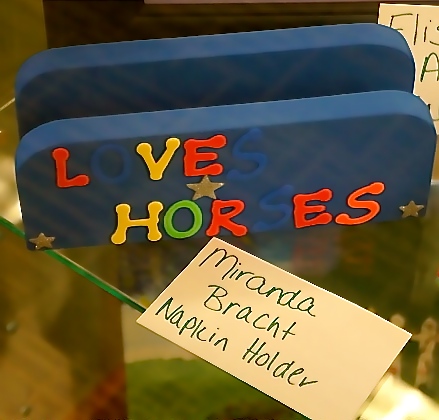 Elis
A
LOVES
HORSES
Miranda
Bracht
Napkin Holder